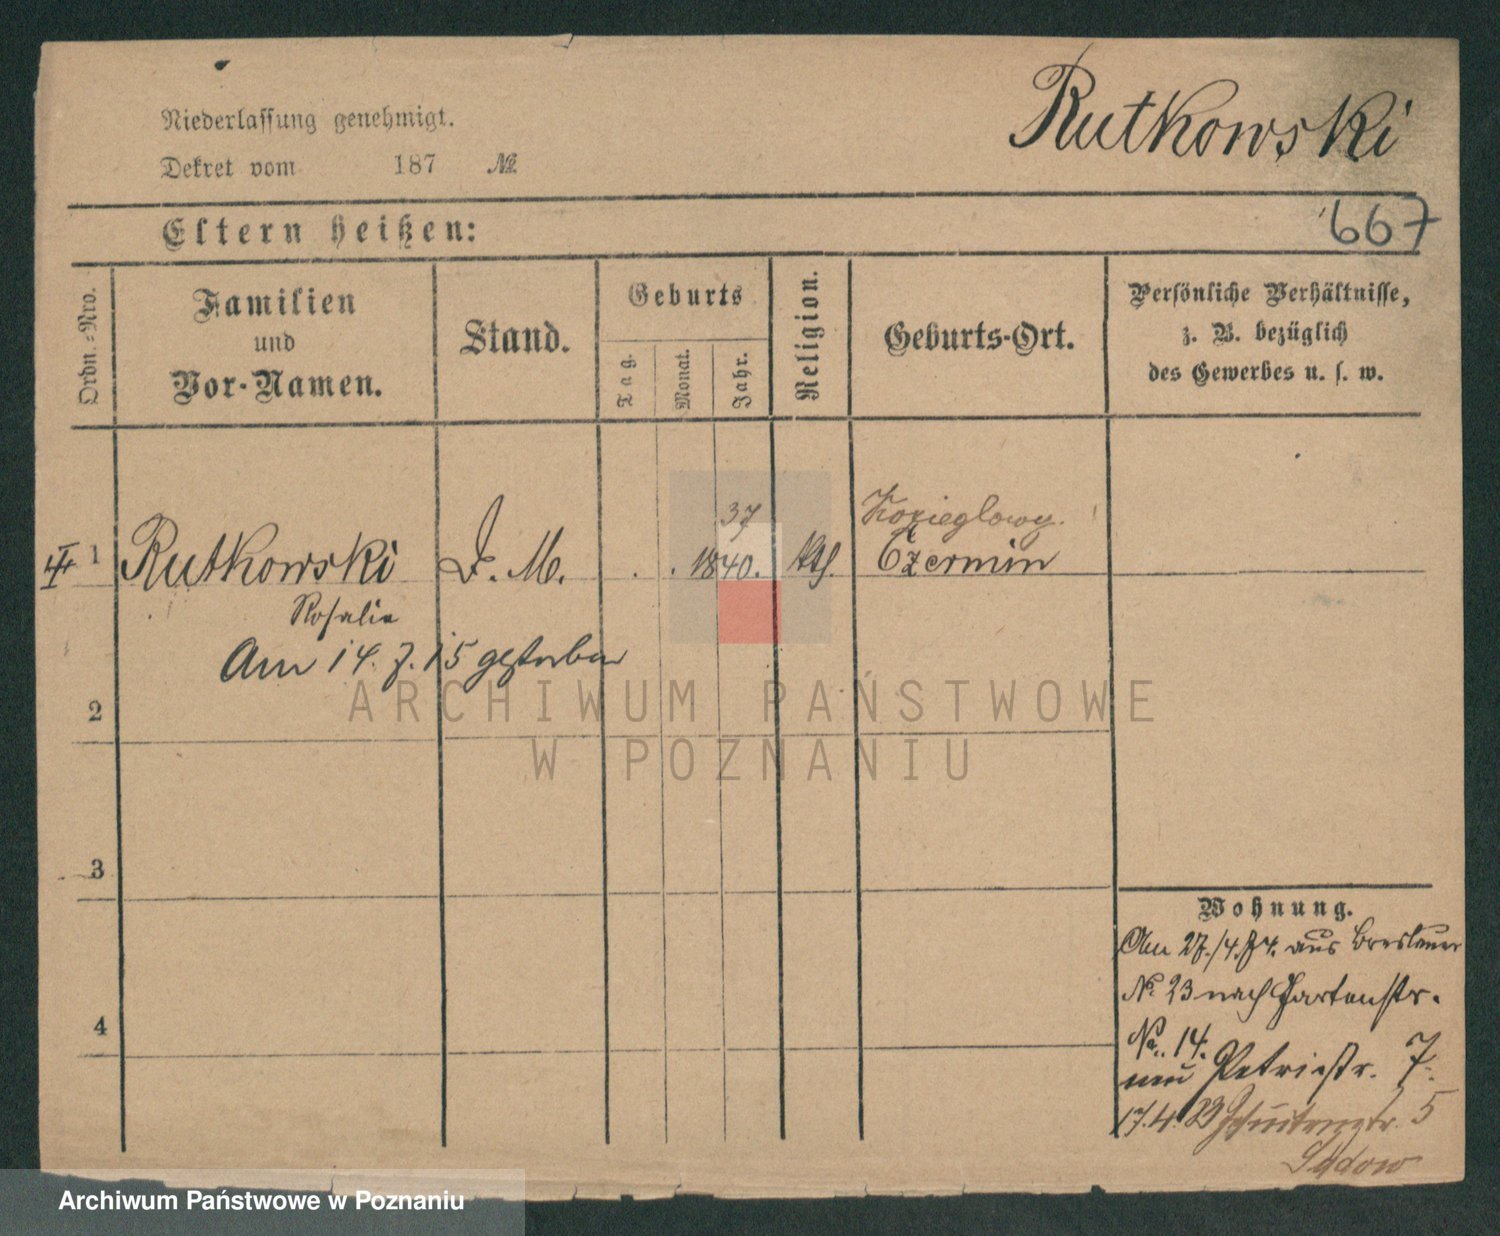 Rutkowski
Niederlassung genehmigt.
Dekret vom 187 №
667
Eltern heißen:
Ordn.-Nro.
Familien
und
Vor-Namen.
Stand.
Geburts
Tag.
Monat.
Jahr.
Religion.
Geburts-Ort.
Persönliche Verhältnisse,
z. B. bezüglich
des Gewerbes u. s. w.
37
Kozieglowy.
1 Rutkowski D. M. 1840. kth. Czermin
Rosalie
Am 14. 7. 15 gestorben
ARCHIWUM PAŃSTWOWE
W POZNANIU
2
3
4
Wohnung.
Am 27./4.74. aus Breslauer
No 23 nach Gartenstr.
No. 14.
neu Petristr. 7.
17.4. 5
Archiwum Państwowe w Poznaniu